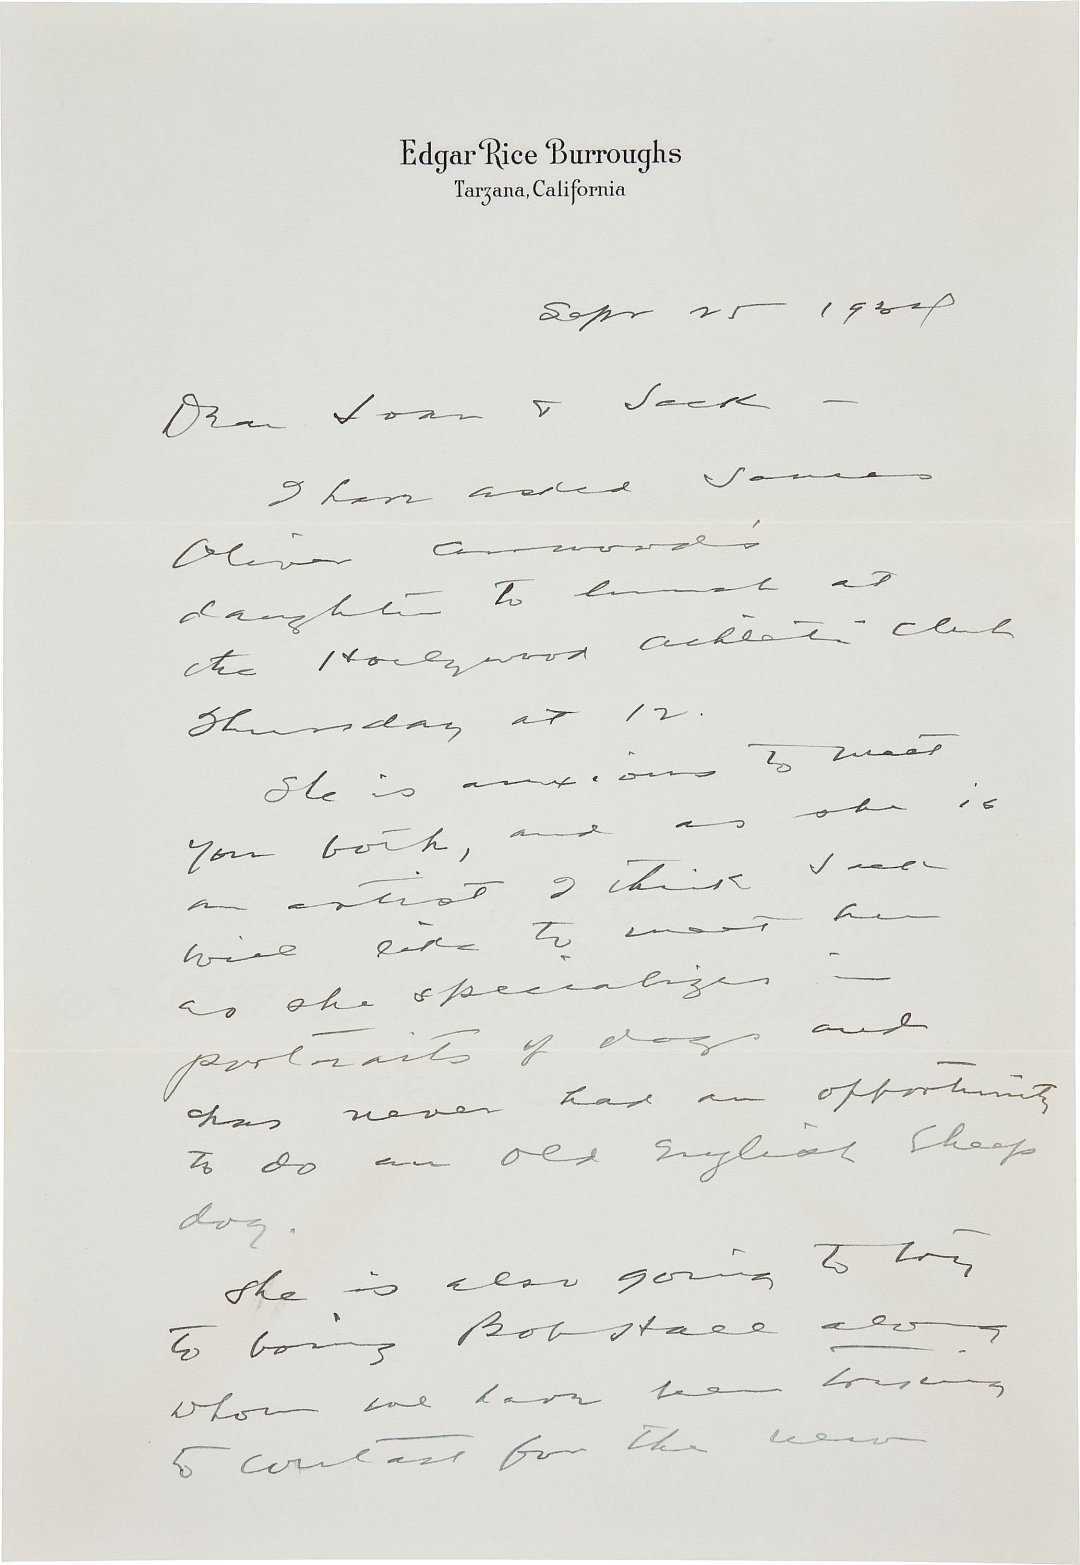 Edgar Rice Burroughs
Tarzana, California
Sept 25 1934
Dear Joan & Jack —
I have asked James
Oliver Curwood's
daughter to lunch at
the Hollywood Athletic Club
Thursday at 12.
She is anxious to meet
you both, and as she is
an artist I think Jack
will like to meet her
as she specializes in
portraits of dogs and
has never had an opportunity
to do an Old English Sheep
dog.
She is also going to try
to bring Bob Stall along
whom we have been trying
to contact for the new